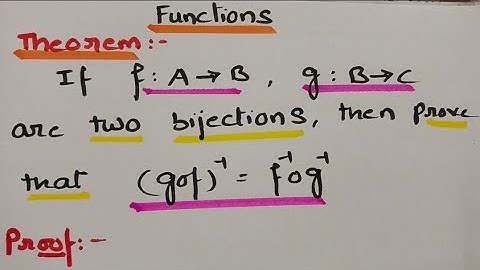 Functions
Theorem:-
If f : A → B , g : B → C
are two bijections, then prove
that (gof)⁻¹ = f⁻¹og⁻¹
Proof:-